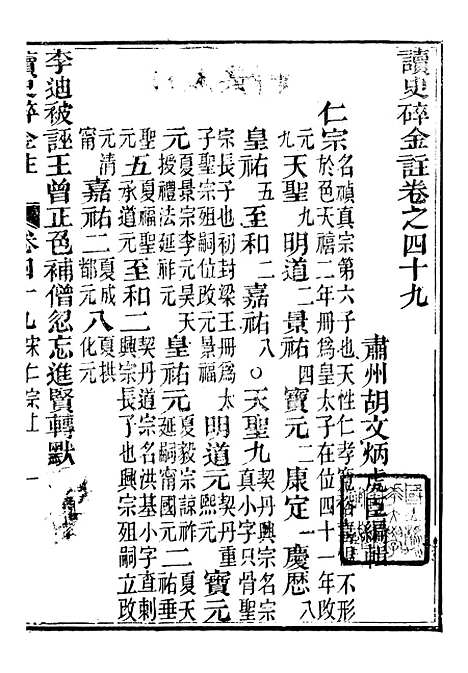 讀史碎金註卷之四十九
肅州胡文炳虎臣編輯
仁宗名禎真宗第六子也天性仁孝寬裕喜慍不形
於色天禧二年冊為皇太子在位四十一年改
元九天聖九明道二景祐四寶元二康定一慶歷八
皇祐五至和二嘉祐八○天聖九契丹興宗名宗
真小字只骨聖
宗長子也初封梁王冊為太
子聖宗殂嗣位改元景福明道元契丹重
熙元寶元
元夏景宗李元昊天
授禮法延祚元皇祐元夏毅宗諒祚
延嗣甯國元二祐垂
聖元五夏福聖
承道元至和二契丹道宗名洪基小字查剌
興宗長子也興宗殂嗣立改
元清
甯嘉祐二夏
都元八夏拱
化元
李迪被誣王曾正色補僧忽忘進賢轉默
讀史碎金註 卷四十九 宋仁宗上 一